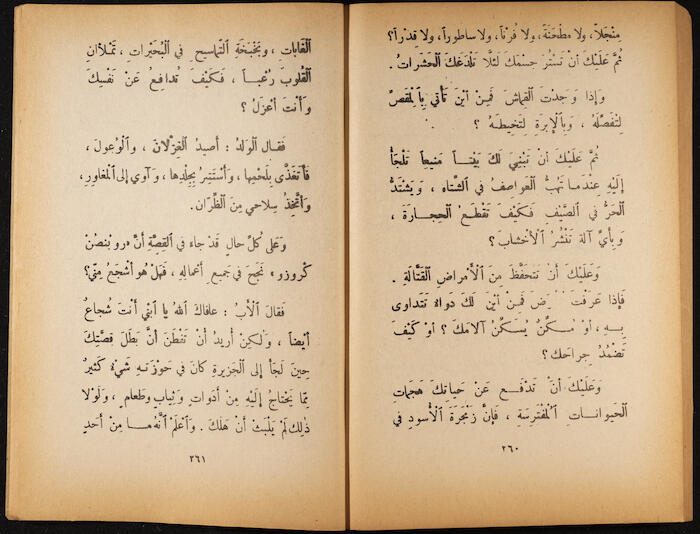 مِنْجَلاً، ولا مِطْحَنَةً، ولا فُرْناً، ولا ساطوراً، ولا قِدْراً؟
ثُمَّ عَلَيْكَ أَنْ تَسْتُرَ جِسْمَكَ لِئَلَّا تَلْدَغَكَ الْحَشَرات.
وإذا وَجَدْتَ القِماشَ فَمِنْ أَيْنَ تَأْتي بِالْمِقَصِّ
لِتَفْصِلَهُ، وبِالْإِبْرَةِ لِتَخيطَهُ؟
ثُمَّ عَلَيْكَ أَنْ تَبْتَنِيَ لَكَ بَيْتاً مَنيعاً تَلْجَأُ
إلَيْهِ عِنْدَما تَهُبُّ العَواصِفُ في الشِّتاء، ويَشْتَدُّ
الحَرُّ في الصَّيْفِ فَكَيْفَ تَقْطَعُ الحِجارَةَ،
وبِأَيِّ آلَةٍ تَنْشُرُ الأَخْشاب؟
وعَلَيْكَ أَنْ تَتَحَفَّظَ مِنَ الْأَمْراضِ القَتَّالَةِ.
فَإذا عَرَفْتَ فَمِنْ أَيْنَ لَكَ دَواءٌ تَتَداوى
بِهِ، أوْ مُسَكِّنٌ يُسَكِّنُ آلامَكَ؟ أوْ كَيْفَ
تُضَمِّدُ جِراحَكَ؟
وعَلَيْكَ أَنْ تَدْفَعَ عَنْ حَياتِكَ هَجَماتِ
الْحَيَواناتِ الْمُفْتَرِسَةِ، فَإِنَّ زَمْجَرَةَ الأُسودِ في
٢٦٠
الغاباتِ، وبَخْبَخَةِ التَّماسيحِ في البُحَيْراتِ، تَمْلَأانِ
القُلوبَ رُعْباً، فَكَيْفَ تُدافِعُ عَنْ نَفْسِكَ
وأَنْتَ أَعْزَلُ؟
فَقالَ الْوَلَدُ: أَصيدُ الغِزْلانَ، والْوُعولَ،
فَأَتَغَذَّى بِلَحْمِها، وأَسْتَتِرُ بِجِلْدِها، وآوي إلى المَغاوِرِ،
وأَتَّخِذُ سِلاحي مِنَ الظِّرَانِ.
وَعَلى كُلِّ حالٍ قَدْ جاءَ في القِصَّةِ أَنَّ «روبنصُنْ
كْروزو» نَجَحَ في جَميعِ أَعْمالِهِ، فَهَلْ هُوَ أَشْجَعُ مِنِّي؟
فَقالَ الْأَبُ: عافاكَ اللهُ يا ابْني أَنْتَ شُجاعٌ
أَيْضاً، ولكِنْ أُريدُ أَنْ تَفْطَنَ أَنَّ بَطَلَ قِصَّتِكَ
حِينَ لَجَأَ إلى الجَزيرةِ كانَ في حَوْزَتِهِ شَيْءٌ كَثيرٌ
مِمَّا يَحْتاجُ إلَيْهِ مِنْ أَدَواتٍ وثِيابٍ وطَعامٍ، ولَوْلا
ذلِكَ لَمْ يَلْبَثْ أَنْ هَلَكَ. وَأَعْلَمْ أَنَّهُ ما مِنْ أَحَدٍ
٢٦١